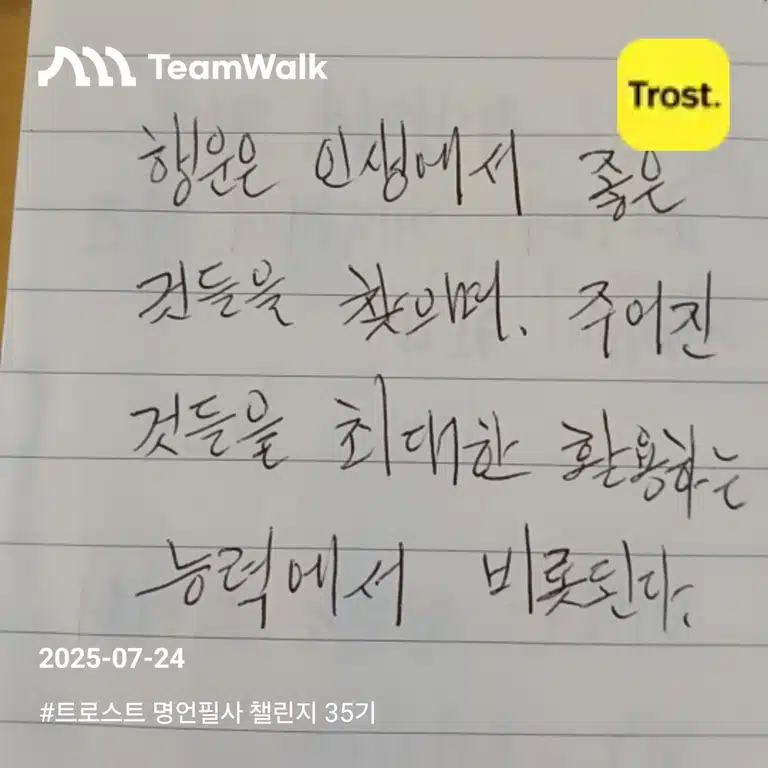 TeamWalk
Trost.
행운은 인생에서 좋은
것들을 찾으며, 주어진
것들을 최대한 활용하는
능력에서 비롯된다.
2025-07-24
#트로스트 명언필사 챌린지 35기